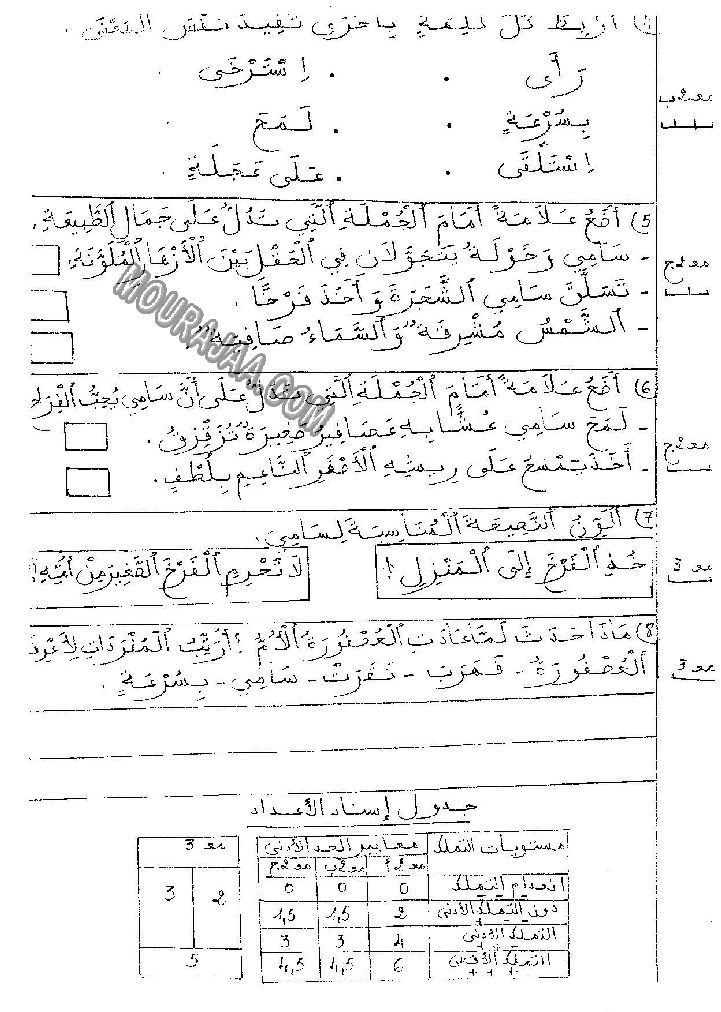 4) أربط كل كلمة بأخرى تفيد نفس المعنى .
رَأَى . . اِسْتَرْخَى
مع2ب
بِسُرْعَةٍ . . لَمَحَ
اِسْتَلْقَى . . عَلَى عَجَلَةٍ
5) أَضَعُ عَلَامَةً أَمَامَ الْجُمْلَةِ الَّتِي تَدُلُّ عَلَى جَمَالِ الطَّبِيعَةِ.
- سَامِي وَخَوْلَةُ يَتَجَوَّلَانِ فِي الْحَقْلِ بَيْنَ الْأَزْهَارِ الْمُلَوَّنَةِ.
مع2ج
- تَسَلَّقَ سَامِي الشَّجَرَةَ وَأَخَذَ فَرْخًا .
- الشَّمْسُ مُشْرِقَةٌ وَالسَّمَاءُ صَافِيَةٌ.
MOURAJAA.COM
6) أَضَعُ عَلَامَةً أَمَامَ الْجُمْلَةِ الَّتِي تَدُلُّ عَلَى أَنَّ سَامِي يُحِبُّ الْفِرَاخَ
- لَمَحَ سَامِي عُشًّا بِهِ عَصَافِيرُ صَغِيرَةٌ تُزَقْزِقُ.
مع2ج
- أَخَذَ يَمْسَحُ عَلَى رِيشِهِ الْأَصْفَرِ النَّاعِمِ بِلُطْفٍ.
7) أُلَوِّنُ النَّصِيحَةَ الْمُنَاسِبَةَ لِسَامِي.
خُذِ الْفَرْخَ إِلَى الْمَنْزِلِ ! لَا تَحْرِمِ الْفَرْخَ الصَّغِيرَ مِنْ أُمِّهِ!
مع3
8) مَاذَا حَدَثَ لَمَّا عَادَتِ الْعُصْفُورَةُ الْأُمُّ ؟ أُرَتِّبُ الْمُفْرَدَاتِ لِأَعْرِفَ
الْعُصْفُورَةُ - فَهَرَبَ - نَقَرَتْ - سَامِي - بِسُرْعَةٍ .
مع3
جدول إسناد الأعداد
مستويات التملك معايير الحد الأدنى
مع2أ مع2ب مع2ج
انعدام التملك 0 0 0
دون التملك الأدنى 2 1,5 1,5
التملك الأدنى 4 3 3
التملك الأقصى 6 4,5 4,5
مع3
2 3
5